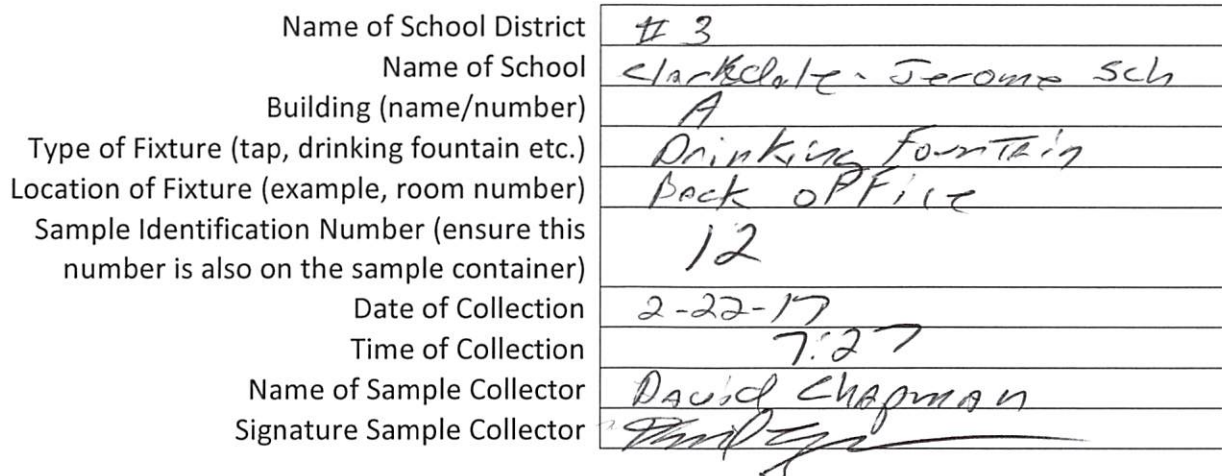 Name of School District # 3
Name of School Clarkdale - Jerome Sch
Building (name/number) A
Type of Fixture (tap, drinking fountain etc.) Drinking FounTain
Location of Fixture (example, room number) Back oFFice
Sample Identification Number (ensure this
number is also on the sample container) 12
Date of Collection 2-22-17
Time of Collection 7:27
Name of Sample Collector David Chapman
Signature Sample Collector